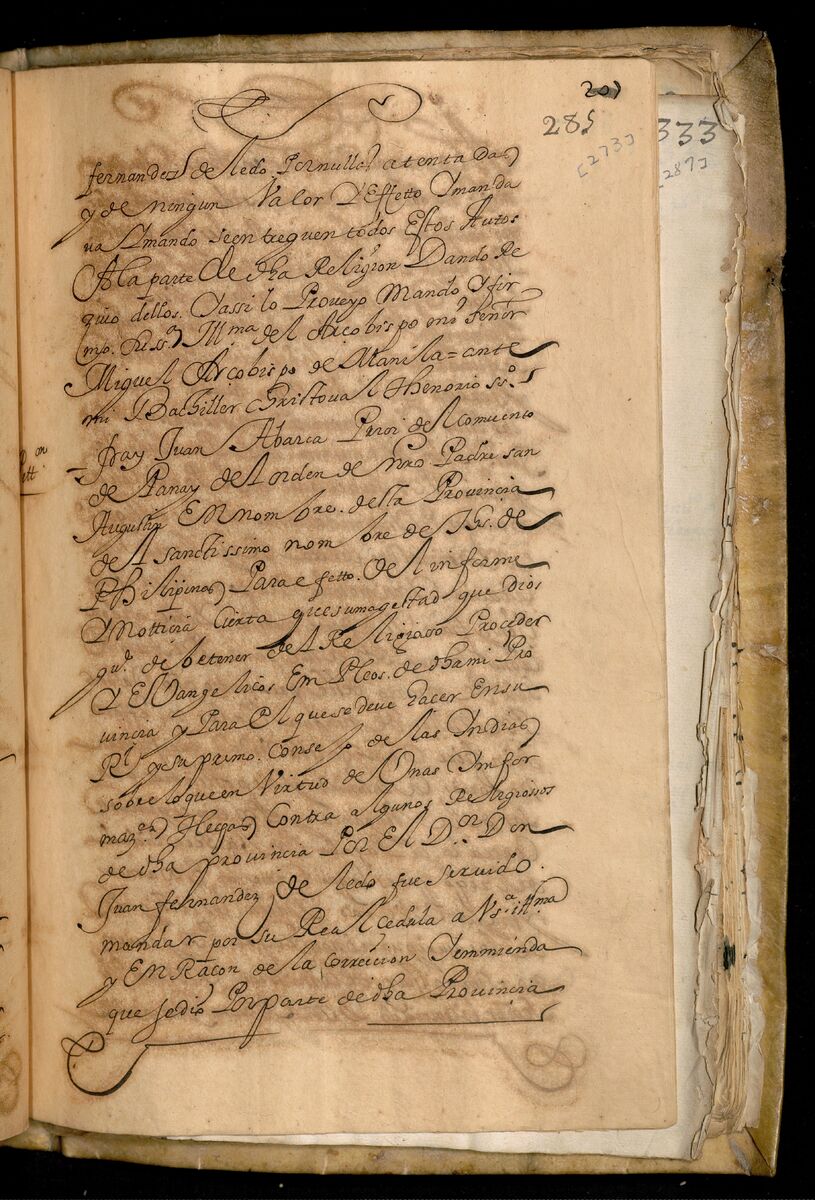 207
285
[273]
333
[287]
fernandez de ledo Por nullos atentados
y de ningun Valor Y Effetto Y manda
va Y mando se en treguen todos Estos Autos
A la parte de dha Religion Dando Re
zivo dellos. Y assi lo Proveyo Mando Y fir
mo. Su ssª Illma del Arcobispo mo señor
Miguel Arçobispo de Manila = ante
mi Bachiller Christoval thenorio sso
on
ett.
– fray Juan Abarca Prior del comvento
de Panay del orden de nro. Padre san
Augustin En nombre. desta Provincia
del sanctissimo nombre de Jhs. de
Philipinas Para efetto. del informe
Y notticia Cierta que su magestad que Dios
gue. debe tener del Religioso Proceder
Y Evangelicos Em Pleos. de dha mi Pro
vincia y Para El que se deve hacer En su
Rl y supremo. Consejo de las Yndias
sobre lo que en Virtud de Unas Ynfor
mazes Hechas Contra algunos Religiossos
de dha provincia Por El Dor Don
Juan fernandez de ledo fue servido.
mandar por su Real cedula a Vsª illma
y En Raçon de la correccion Y emmienda
que se dio Por parte de dha Provincia